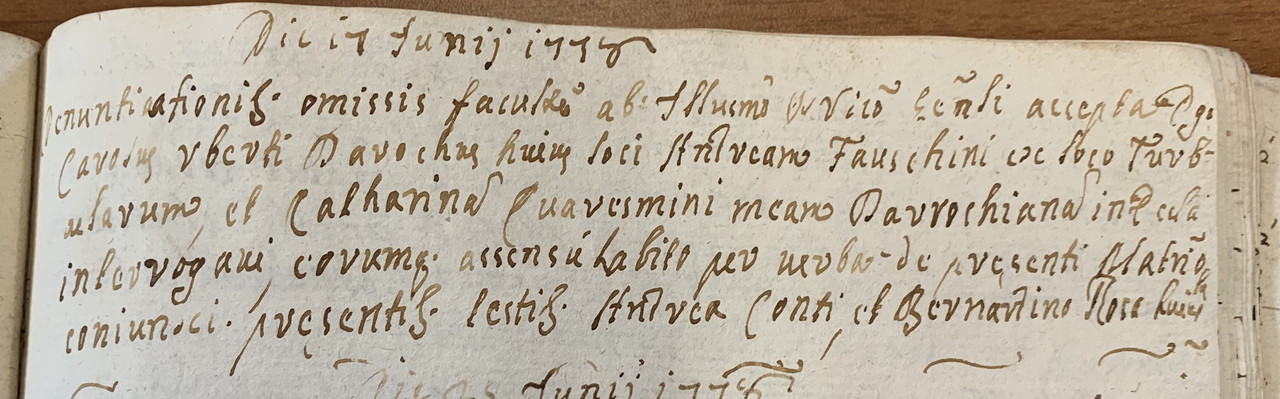 Die 17 Junij 1778
Denuntiationib. omissis facultẽ ab Illusmõ Vicõ Genli accepta Ego
Carolus Uberti Parochus huius loci Andream Fauschini ex loco Turb-
ularum, et Catharinã Quaresmini meam Parrochianã in Ecclã
interrogavi, eorumq. assensu habito per verba de presenti Matrõ
coniunxi. presentib. testib. Andrea Conti, et Bernardino Rose huius
Junij